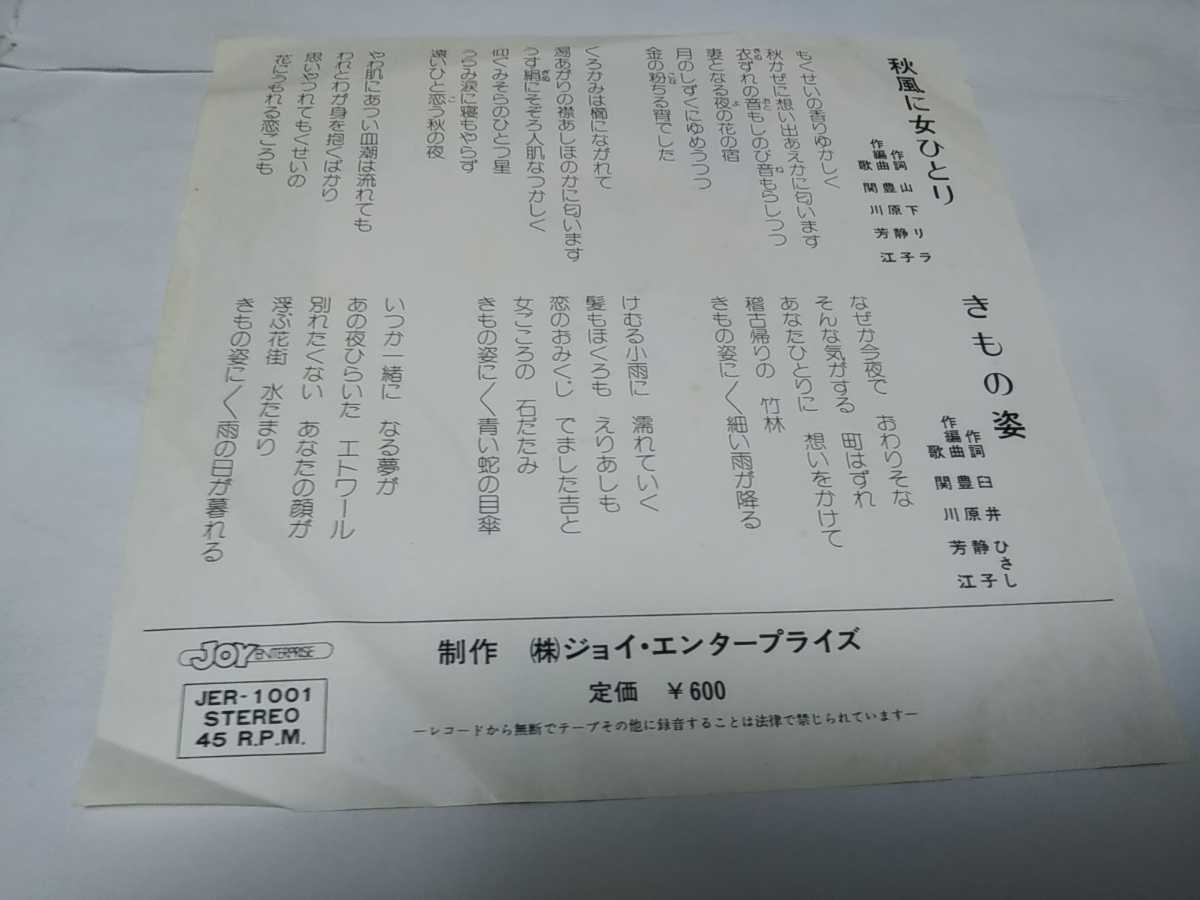 秋風に女ひとり
作詞 山下リラ
作編曲 豊原静子
歌 関川芳江
もくせいの香りゆかしく
秋かぜに想い出あえかに匂います
衣ずれの音もしのび音もらしつつ
妻となる夜の花の宿
月のしずくにゆめうつつ
金の粉ちる宵でした
くろかみは櫛にながれて
湯あがりの襟あしほのかに匂います
うす絹にそぞろ人肌なつかしく
仰ぐみそらのひとつ星
うらみ涙に寝もやらず
遠いひと恋う秋の夜
やわ肌にあつい血潮は流れても
われとわが身を抱くばかり
思いやつれてもくせいの
花にうもれる恋ごろも
きもの姿
作詞 臼井ひさし
作編曲 豊原静子
歌 関川芳江
なぜか今夜で　おわりそな
そんな気がする　町はずれ
あなたひとりに　想いをかけて
稽古帰りの　竹林
きもの姿に〱細い雨が降る
けむる小雨に　濡れていく
髪もほくろも　えりあしも
恋のおみくじ　でました吉と
女ごころの　石だたみ
きもの姿に〱青い蛇の目傘
いつか一緒に　なる夢が
あの夜ひらいた　エトワール
別れたくない　あなたの顔が
浮ぶ花街　水たまり
きもの姿に〱雨の日が暮れる
JOY ENTERPRISE
JER-1001
STEREO
45 R.P.M.
制作　㈱ジョイ・エンタープライズ
定価　￥600
―レコードから無断でテープその他に録音することは法律で禁じられています―